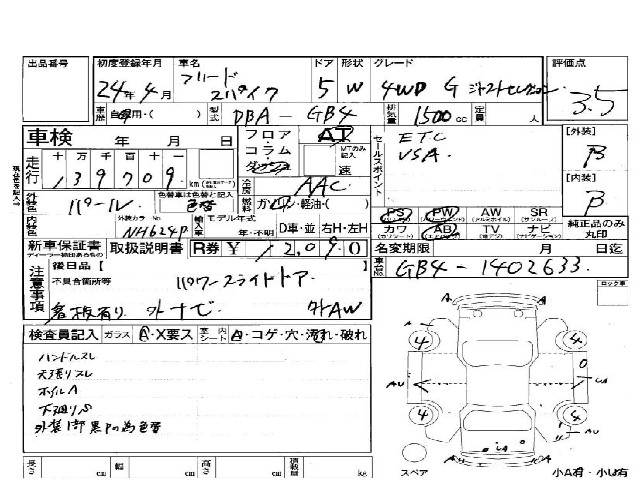 出品番号 初度登録年月 車名 ドア 形状 グレード 評価点
24年4月 フリード スパイク 5 W 4WD G ジャストセレクション 3.5
車歴 自家用・( ) 型式 DBA-GB4 排気量 1500cc 定員 人
車検 年 月 日 フロア・コラム・ AT セールスポイント ETC [外装]
十 万 千 百 十 一 MTのみ記入 速 USA. B
走行 139709 km 冷房 AAC [内装]
外装色 パール 色替車は色替と記入 色替 ガソリン・軽油・( ) B
内装色 外装カラーNo. NH624P 輸入車 モデル年式 年・不明 D車・並 右H・左H
PS PW AW SR
カワ AB TV ナビ 純正品のみ丸印
新車保証書 取扱説明書 R券 ¥12,090 名変期限 月 日迄
注意事項 後日品【 】 車台No. GB4-1402633
不具合箇所等 パワースライドドア ロック車
名板有り 外ナビ 外AW
検査員記入 ガラス A・X要ス 室シート内 A・コゲ・穴・汚れ・破れ
ハンドルスレ
天張りスレ
ホイルA
下廻りS
外装1部黒Pの為色替
A A
4 4
AU UA
4 4
AU UA AU
スペア 小A有・小U有
長さ cm 幅 cm 高さ cm 積載量 kg